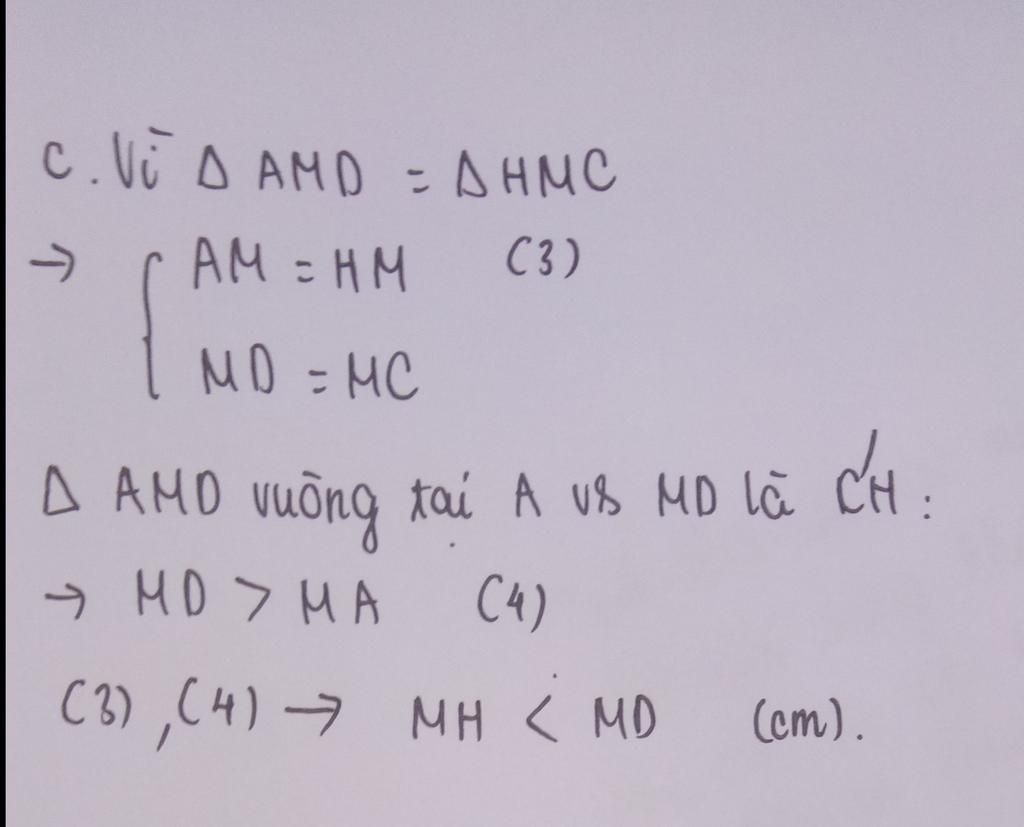 c. Vì Δ AMD = Δ HMC
→ { AM = HM (3)
MD = MC
Δ AMD vuông tại A vs MD là CH :
→ MD > MA (4)
(3), (4) → MH < MD (cm).